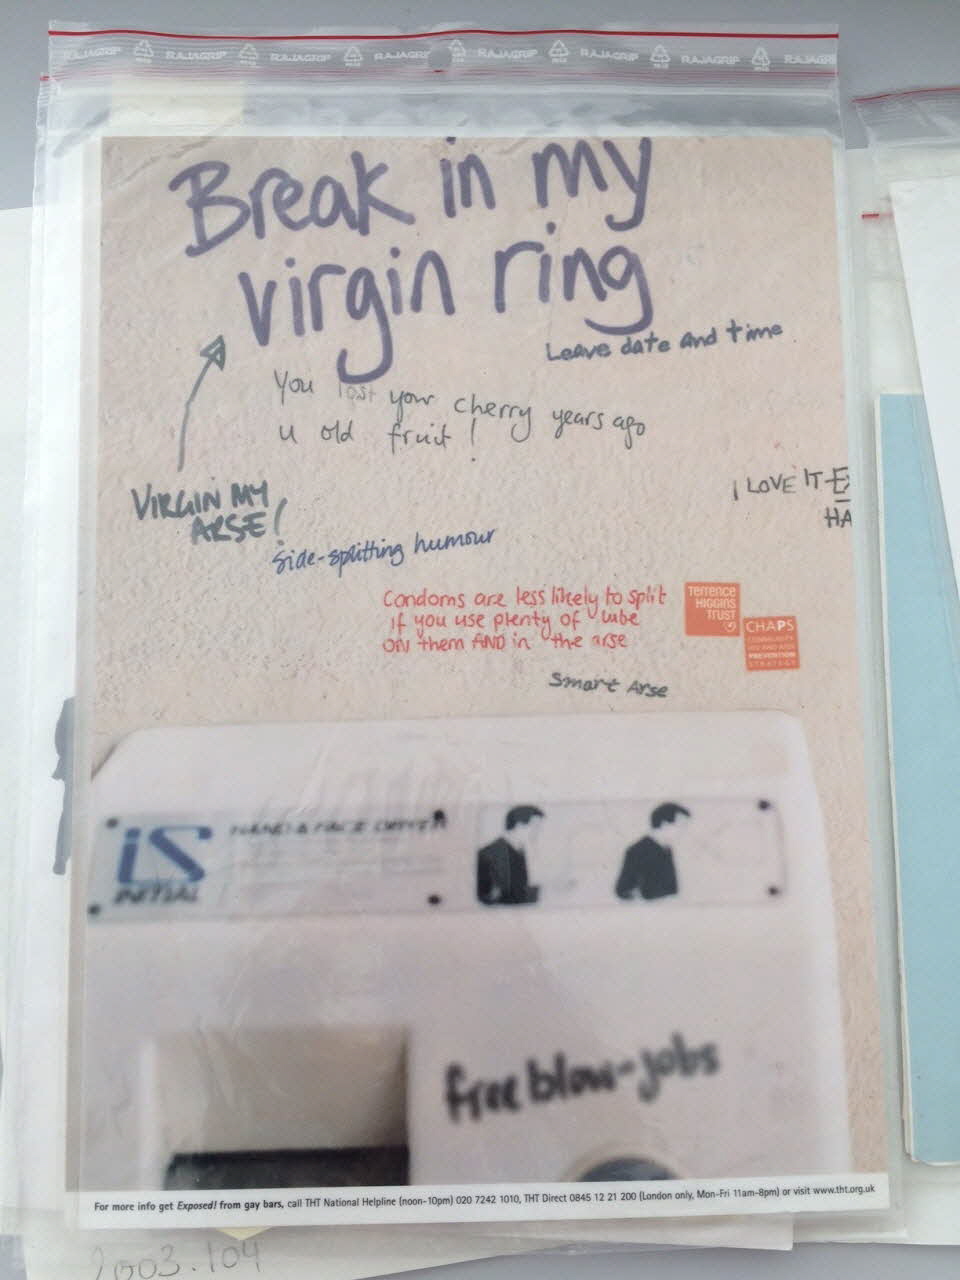 RAJAGRIP RAJAGRIP RAJAGRIP RAJAGRIP RAJAGRIP RAJAGRIP RAJAGRIP
Break in my
virgin ring
Leave date and time
You lost your cherry years ago
u old fruit!
I LOVE IT
HA
VIRGIN MY
ARSE!
Side-splitting humour
Condoms are less likely to split
if you use plenty of lube
ON them AND in the arse
TERRENCE
HIGGINS
TRUST
CHAPS
COMMUNITY
HIV AND AIDS
PREVENTION
STRATEGY
Smart Arse
iS
INITIAL
HAND & FACE DRYER
free blow-jobs
For more info get Exposed! from gay bars, call THT National Helpline (noon-10pm) 020 7242 1010, THT Direct 0845 12 21 200 (London only, Mon-Fri 11am-8pm) or visit www.tht.org.uk
2003.104